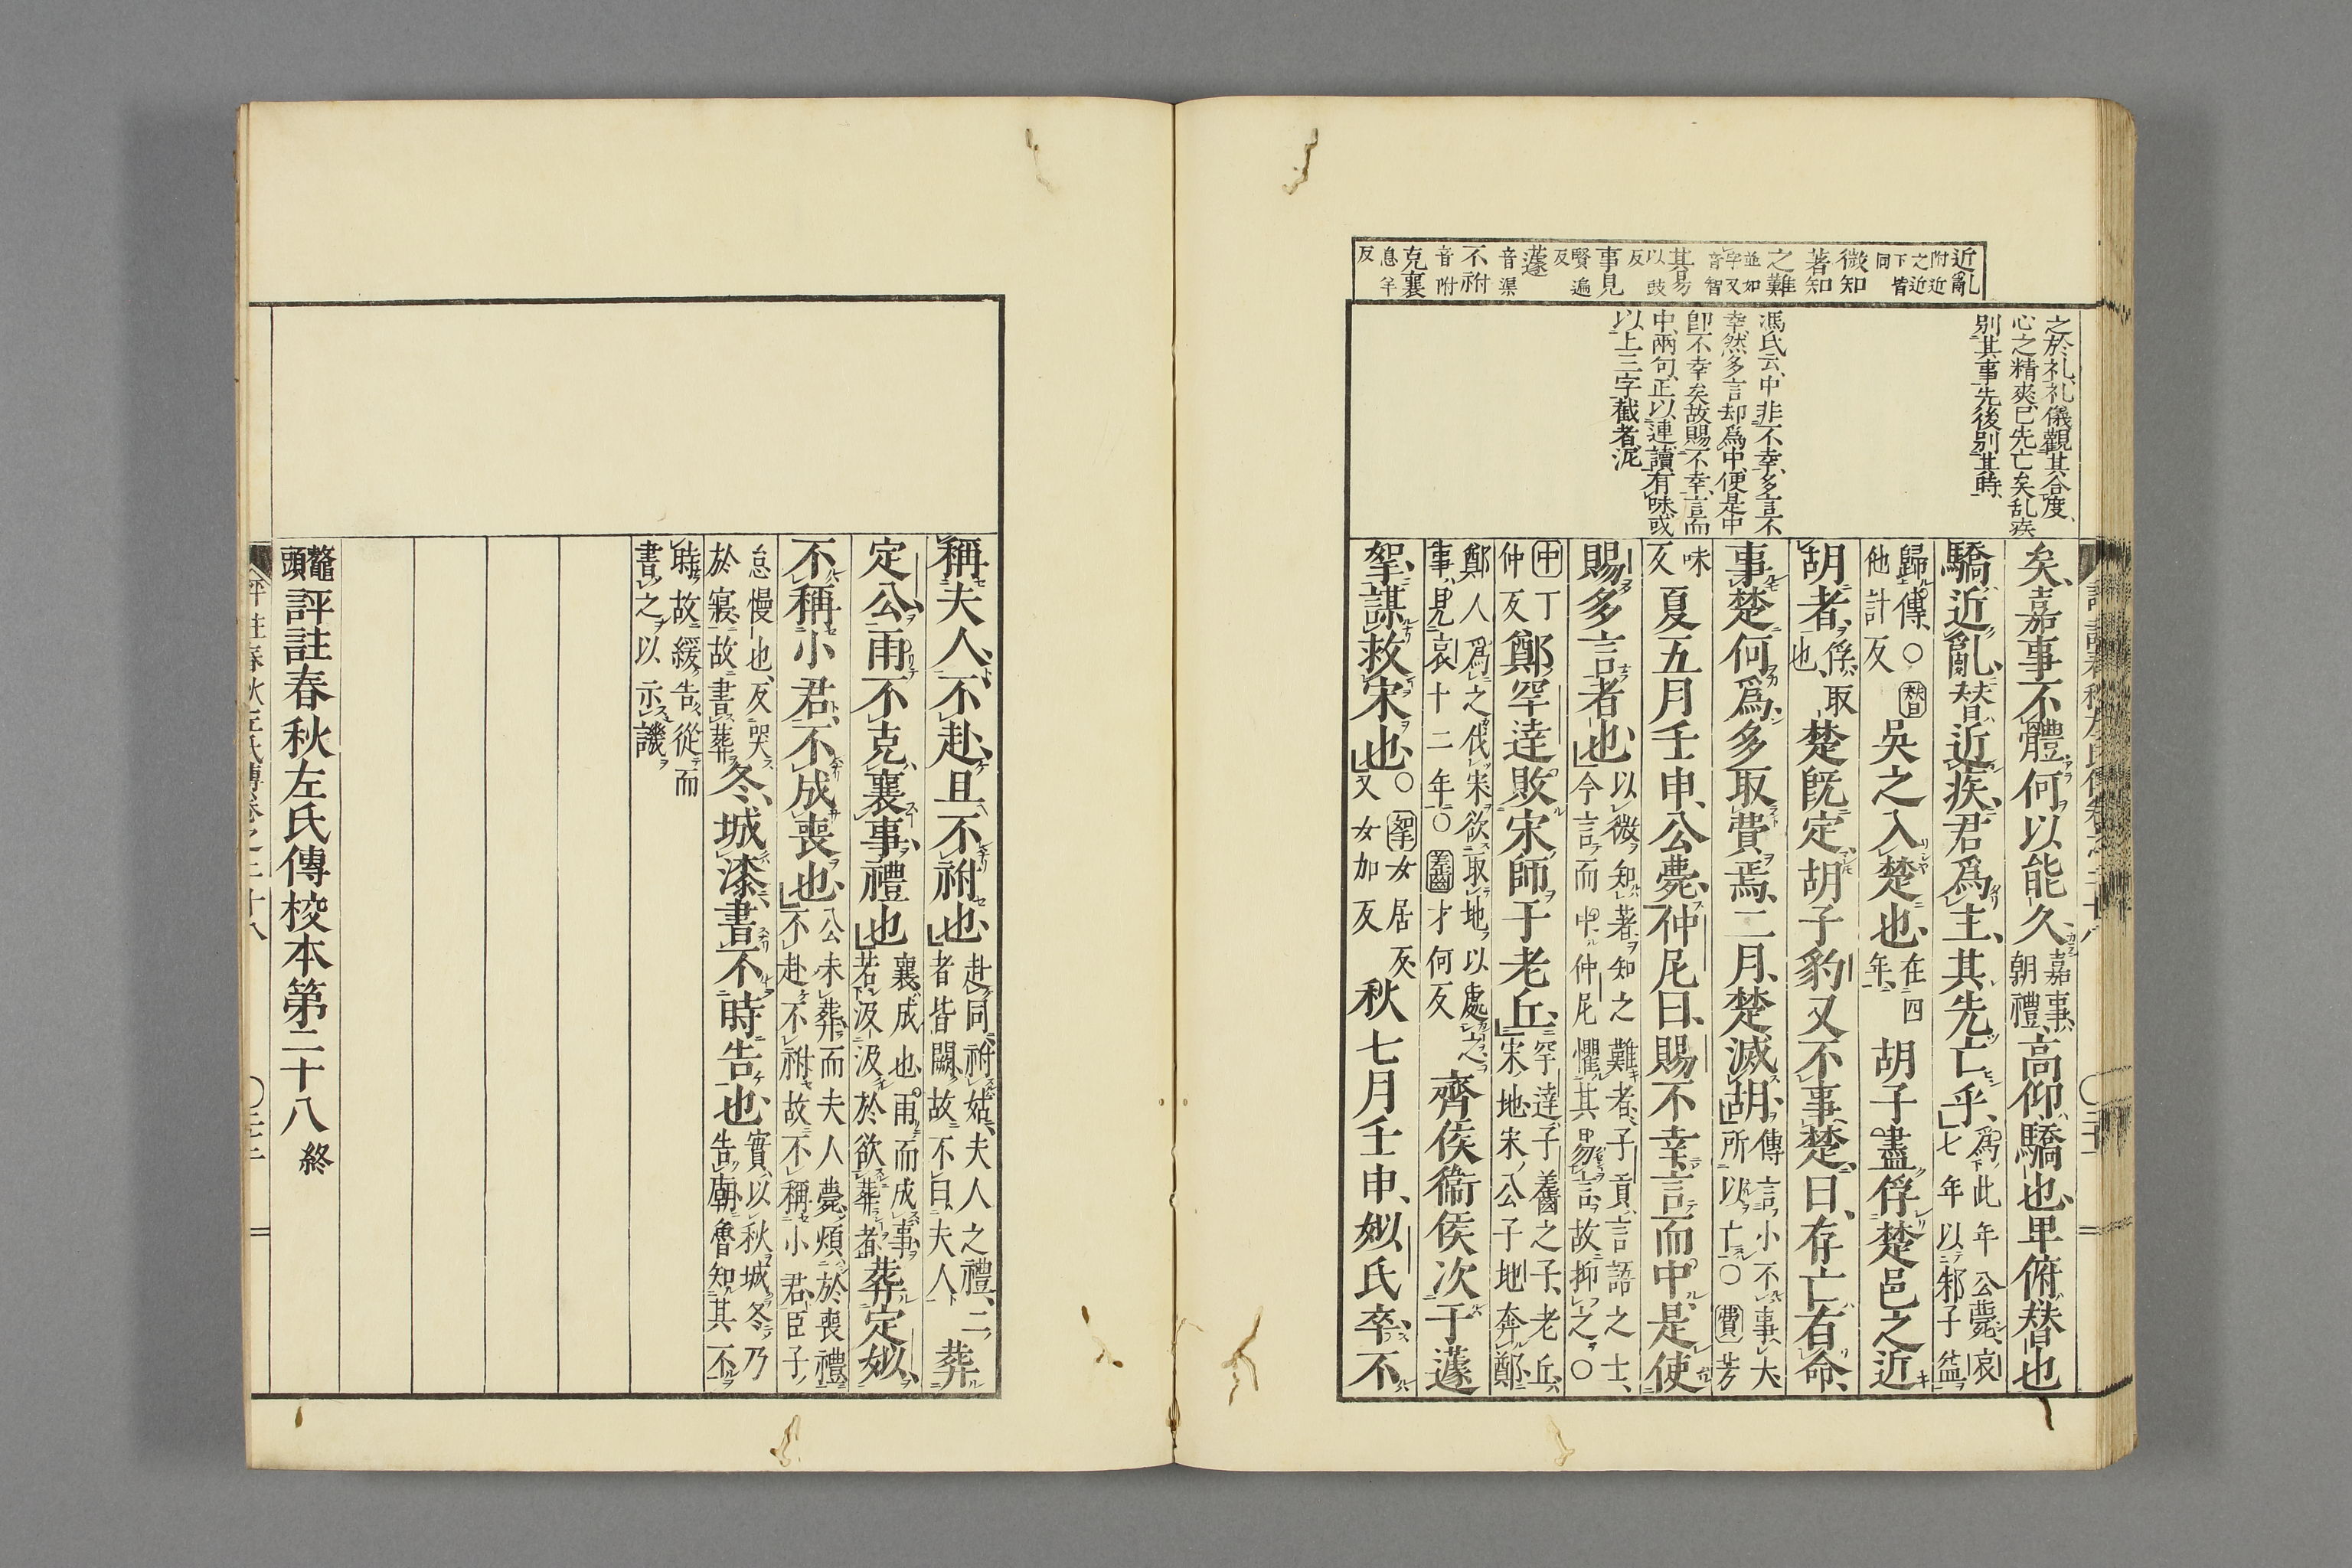 近亂
附近之近下皆同
微知
著知
之難
並如字又音智
其易
以豉反
事見
賢遍反
蘧
音渠
不祔
音附
克襄
息羊反
之於礼、礼儀觀其合度、
心之精爽、已先亡矣乱疾
别其事先後别其時、
馮氏云、中非不幸、多言不
幸、然多言却爲中、便是中
即不幸矣故賜不幸、言而
中、兩句、正以連讀有味或
以上三字截者泥
矣、嘉事不體何以能久、嘉事、朝禮、高仰、驕也、卑俯、替也
驕、近亂、替、近疾、君爲主、其先亡乎、爲此年公薨、哀七年以邾子益
歸傳、○替他計反吳之入楚也、在四年、胡子盡俘楚邑之近
胡者、俘、取也、楚既定、胡子豹又不事楚、曰、存亡有命、
事楚何爲、多取費焉、二月、楚滅胡、傳言小不事大、所以亡○費芳
味反夏五月壬申、公薨、仲尼曰、賜不幸言而中是使
賜多言者也、以微知著、知之難者、子貢、言語之士、今言而中、仲尼懼其易言、故抑之○
中丁仲反鄭罕達敗宋師于老丘、罕達、子齹之子、老丘、宋地、宋公子地奔鄭
鄭人爲之伐宋欲取地以處之事、見哀十二年○齹才何反齊侯衛侯次于蘧
挐、謀救宋也、○挐女居反又女加反秋七月壬申、姒氏卒、不
稱夫人、不赴、且不祔也、赴同、祔姑、夫人之禮、二者皆闕、故不曰夫人葬
定公、雨不克襄事、禮也襄、成也、雨而成事、若汲汲於欲葬者、葬定姒、
不稱小君、不成喪也、公未葬而夫人薨、煩於喪禮、不赴、不祔故不稱小君、臣子
怠慢也、反哭於寢、故書葬冬、城漆、書、不時告也、實以秋城、冬乃告廟魯知其不
時故緩告、從而書之以示譏
鼇頭評註春秋左氏傳校本第二十八終